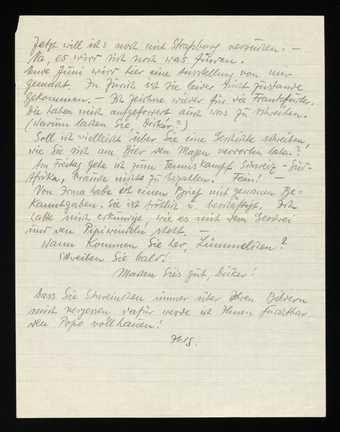 Jetzt will ich's noch mit Straßburg versuchen. –
Na, es wird sich noch was finden.
Ende Juni wird hier eine Ausstellung von mir
gemacht. In Zürich ist sie leider nicht zustande
gekommen. – Ich zeichne wieder für die Frankfurter.
Die haben mich aufgefordert auch was zu schreiben.
(Warum lachen Sie, Dicker?)
Soll ich vielleicht über Sie eine Geschichte schreiben,
wie Sie sich am Bier den Magen verdorben haben?
Am Freitag gehe ich zum Tenniskampf Schweiz – Süd-
Afrika, brauche nichts zu bezahlen. Fein! –
Von Irma habe ich einen Brief mit genauen Be-
kanntgaben. Sie ist fröhlich u. beschäftigt. Ich
habe mich erkundigt, wie es mit dem
und den steht. –
Wann kommen Sie her, Lümmelchen?
Schreiben Sie bald!
Machen Sie's gut, Dicker!
Dass Sie Schweinchen immer über Ihren Bildern
mich vergessen, dafür werde ich Ihnen furchtbar
den Popo vollhauen!